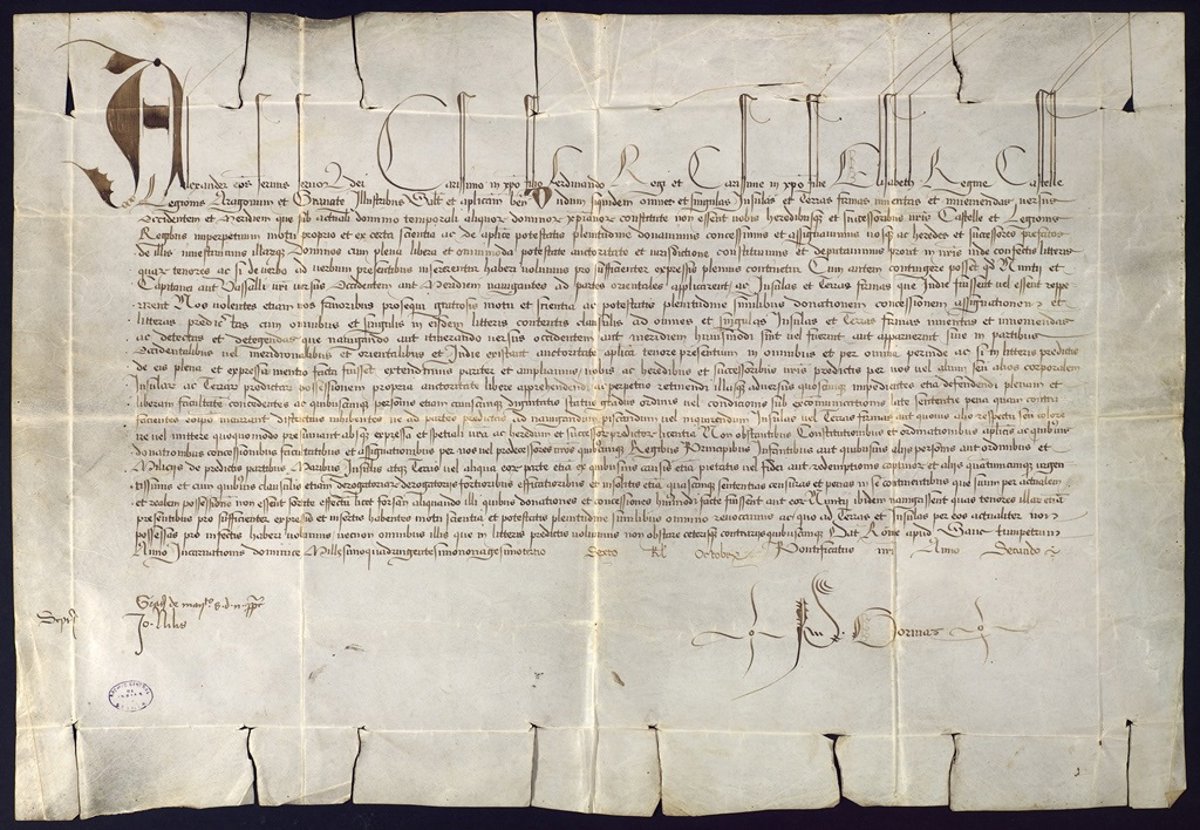 Alexander eps servus servor dei Carissimo in xpo filio Ferdinando Regi et Carissime in xpo filie Elisabeth Regine Castelle
Legionis Aragonum et Granate Illustribus Salt et aplicam ben Dudum siquidem omnes et singulas Insulas et Terras firmas inventas et inveniendas versus
Occidentem et Meridiem que sub actuali dominio temporali aliquor dominor xpianor constitute non essent vobis heredibusq et successoribus vris Castelle et Legionis
Regibus imperpetuum motu proprio et ex certa scientia ac de aplice potestatis plenitudine donavimus concessimus et assignavimus vosq ac heredes et successores prefatos
de illis investivimus illarumq Dominos cum plena libera et omnimoda potestate auctoritate et iurisdictione constituimus et deputavimus prout in nris inde confectis litteris
quar tenores ac si de verbo ad verbum presentibus insererentur haberi volumus pro sufficienter expressis plenius continetur Cum autem contingere posset qd Nuntii et
Capitanei aut Vassalli vri versus Occidentem aut Meridiem navigantes ad partes orientales applicarent ac Insulas et Terras firmas que Indie fuissent vel essent repe
rirent Nos volentes etiam vos favoribus prosequi gratiosis motu et scientia ac potestatis plenitudine similibus donationem concessionem assignationem et
litteras predictas cum omnibus et singulis in eisdem litteris contentis clausulis ad omnes et singulas Insulas et Terras firmas inventas et inveniendas
ac detectas et detegendas que navigando aut itinerando versus occidentem aut meridiem huiusmodi sint vel fuerint aut apparuerint sive in partibus
Occidentalibus vel meridionalibus et orientalibus et Indie existant auctoritate aplica tenore presentium in omnibus et per omnia perinde ac si in litteris predictis
de eis plena et expressa mentio facta fuisset extendimus pariter et ampliamus vobis ac heredibus et successoribus vris predictis per vos vel alium seu alios corporalem
Insular ac Terrar predictar possessionem propria auctoritate libere apprehendendi ac perpetuo retinendi illasq adversus quoscumq impedientes etia defendendi plenam et
liberam facultate concedentes ac quibuscumq personis etiam cuiuscumq dignitatis status gradus ordinis vel condicionis sub excomunicationis late sententie pena quam contra
facientes eo ipso incurrant districtius inhibentes ne ad partes predictas ad navigandum piscandum vel inquirendum Insulas vel Terras firmas aut quovis alio respectu seu colore
ire vel mittere quoquomodo presumant absq expressa et spetiali vra ac heredum et successor predictor licentia Non obstantibus Constitutionibus et ordinationibus aplicis ac quibusvis
donationibus concessionibus facultatibus et assignationibus per nos vel predecessores nros quibuscumq Regibus Principibus Infantibus aut quibusvis aliis personis aut ordinibus et
Miliciis de predictis partibus Maribus Insulis atq Terris vel aliqua eor parte etia ex quibusvis causis etia pietatis vel fidei aut redemptionis captivor et aliis quantumcumq urgen
tissimis et cum quibusvis clausulis etiam derogatoriar derogatoriis fortioribus efficatioribus et insolitis etia quascumq sententias censuras et penas in se continentibus que suum per actualem
et realem possessionem non essent sortite effectu licet forsan aliquando illi quibus donationes et concessiones huiusmodi facte fuissent aut eor Nuntii ibidem navigassent quas tenores illar etia
presentibus pro sufficienter expressis et insertis habentes motu scientia et potestatis plenitudine similibus omnino revocamus ac quo ad Terras et Insulas per eos actualiter non
possessas pro infectis haberi volumus necnon omnibus illis que in litteris predictis voluimus non obstare ceterisq contrariis quibuscumq Dat Rome apud Sanctumpetrum
Anno Incarnationis dominice Millesimoquadringentesimononagesimotertio Sexto Kl Octobr Pontificatus nri Anno Secundo
Jo. Nilis
ARCHIVO GENERAL DE INDIAS SEVILLA